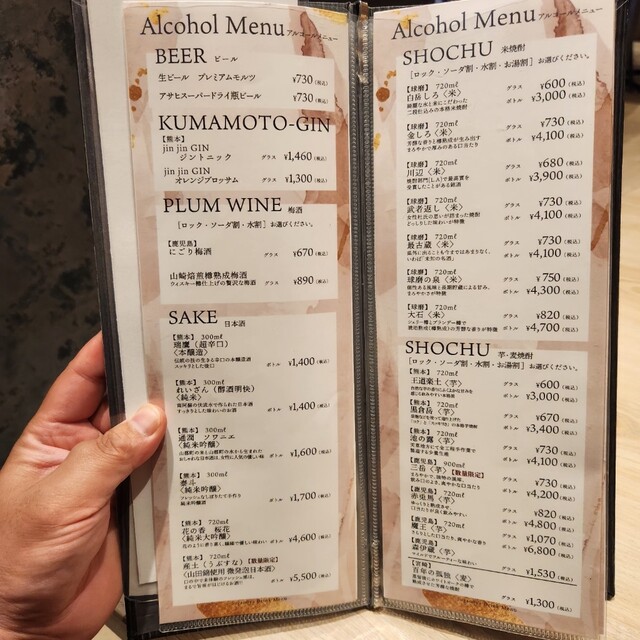 Alcohol Menu アルコールメニュー
BEER ビール
生ビール プレミアムモルツ ¥730(税込)
アサヒスーパードライ瓶ビール ¥730(税込)
KUMAMOTO-GIN
【熊本】
jin jin GIN
ジントニック グラス ¥1,460(税込)
jin jin GIN
オレンジブロッサム グラス ¥1,300(税込)
PLUM WINE 梅酒
［ロック・ソーダ割・水割］お選びください。
【鹿児島】
にごり梅酒 グラス ¥670(税込)
山崎焙煎樽熟成梅酒 グラス ¥890(税込)
ウイスキー樽仕上げの贅沢な梅酒
SAKE 日本酒
【熊本】 300mℓ
瑞鷹（超辛口）
〈本醸造〉 ボトル ¥1,400(税込)
【熊本】 300mℓ
れいざん（醇酒明快）
〈純米〉 ボトル ¥1,400(税込)
【熊本】 300mℓ
通潤 ソワニエ
〈純米吟醸〉 ボトル ¥1,600(税込)
【熊本】 300mℓ
泰斗
〈純米吟醸〉 ボトル ¥1,700(税込)
【熊本】 720mℓ
花の香 桜花
〈純米大吟醸〉 ボトル ¥4,600(税込)
【熊本】 720mℓ
産土（うぶすな）【数量限定】
〈山田錦使用 微発泡日本酒〉 ボトル ¥5,500(税込)
Alcohol Menu アルコールメニュー
SHOCHU 米焼酎
［ロック・ソーダ割・水割・お湯割］お選びください。
【球磨】 720mℓ グラス ¥600(税込)
白岳しろ〈米〉 ボトル ¥3,000(税込)
【球磨】 720mℓ グラス ¥730(税込)
金しろ〈米〉 ボトル ¥4,100(税込)
【球磨】 720mℓ グラス ¥680(税込)
川辺〈米〉 ボトル ¥3,900(税込)
【球磨】 720mℓ グラス ¥730(税込)
武者返し〈米〉 ボトル ¥4,100(税込)
【球磨】 720mℓ グラス ¥730(税込)
最古蔵〈米〉 ボトル ¥4,100(税込)
【球磨】 720mℓ グラス ¥750(税込)
球磨の泉〈米〉 ボトル ¥4,300(税込)
【球磨】 720mℓ グラス ¥820(税込)
大石〈米〉 ボトル ¥4,700(税込)
SHOCHU 芋・麦焼酎
［ロック・ソーダ割・水割・お湯割］お選びください。
【熊本】 720mℓ グラス ¥600(税込)
王道楽土〈芋〉 ボトル ¥3,000(税込)
【熊本】 720mℓ グラス ¥670(税込)
黒倉岳〈芋〉 ボトル ¥3,400(税込)
【熊本】 720mℓ グラス ¥730(税込)
池の露〈芋〉 ボトル ¥4,100(税込)
【鹿児島】 900mℓ グラス ¥730(税込)
三岳〈芋〉【数量限定】 ボトル ¥4,200(税込)
【鹿児島】 720mℓ グラス ¥820(税込)
赤兎馬〈芋〉 ボトル ¥4,800(税込)
【鹿児島】 720mℓ グラス ¥1,070(税込)
魔王〈芋〉 ボトル ¥6,800(税込)
【鹿児島】
森伊蔵〈芋〉 グラス ¥1,530(税込)
【宮崎】
百年の孤独〈麦〉 グラス ¥1,300(税込)